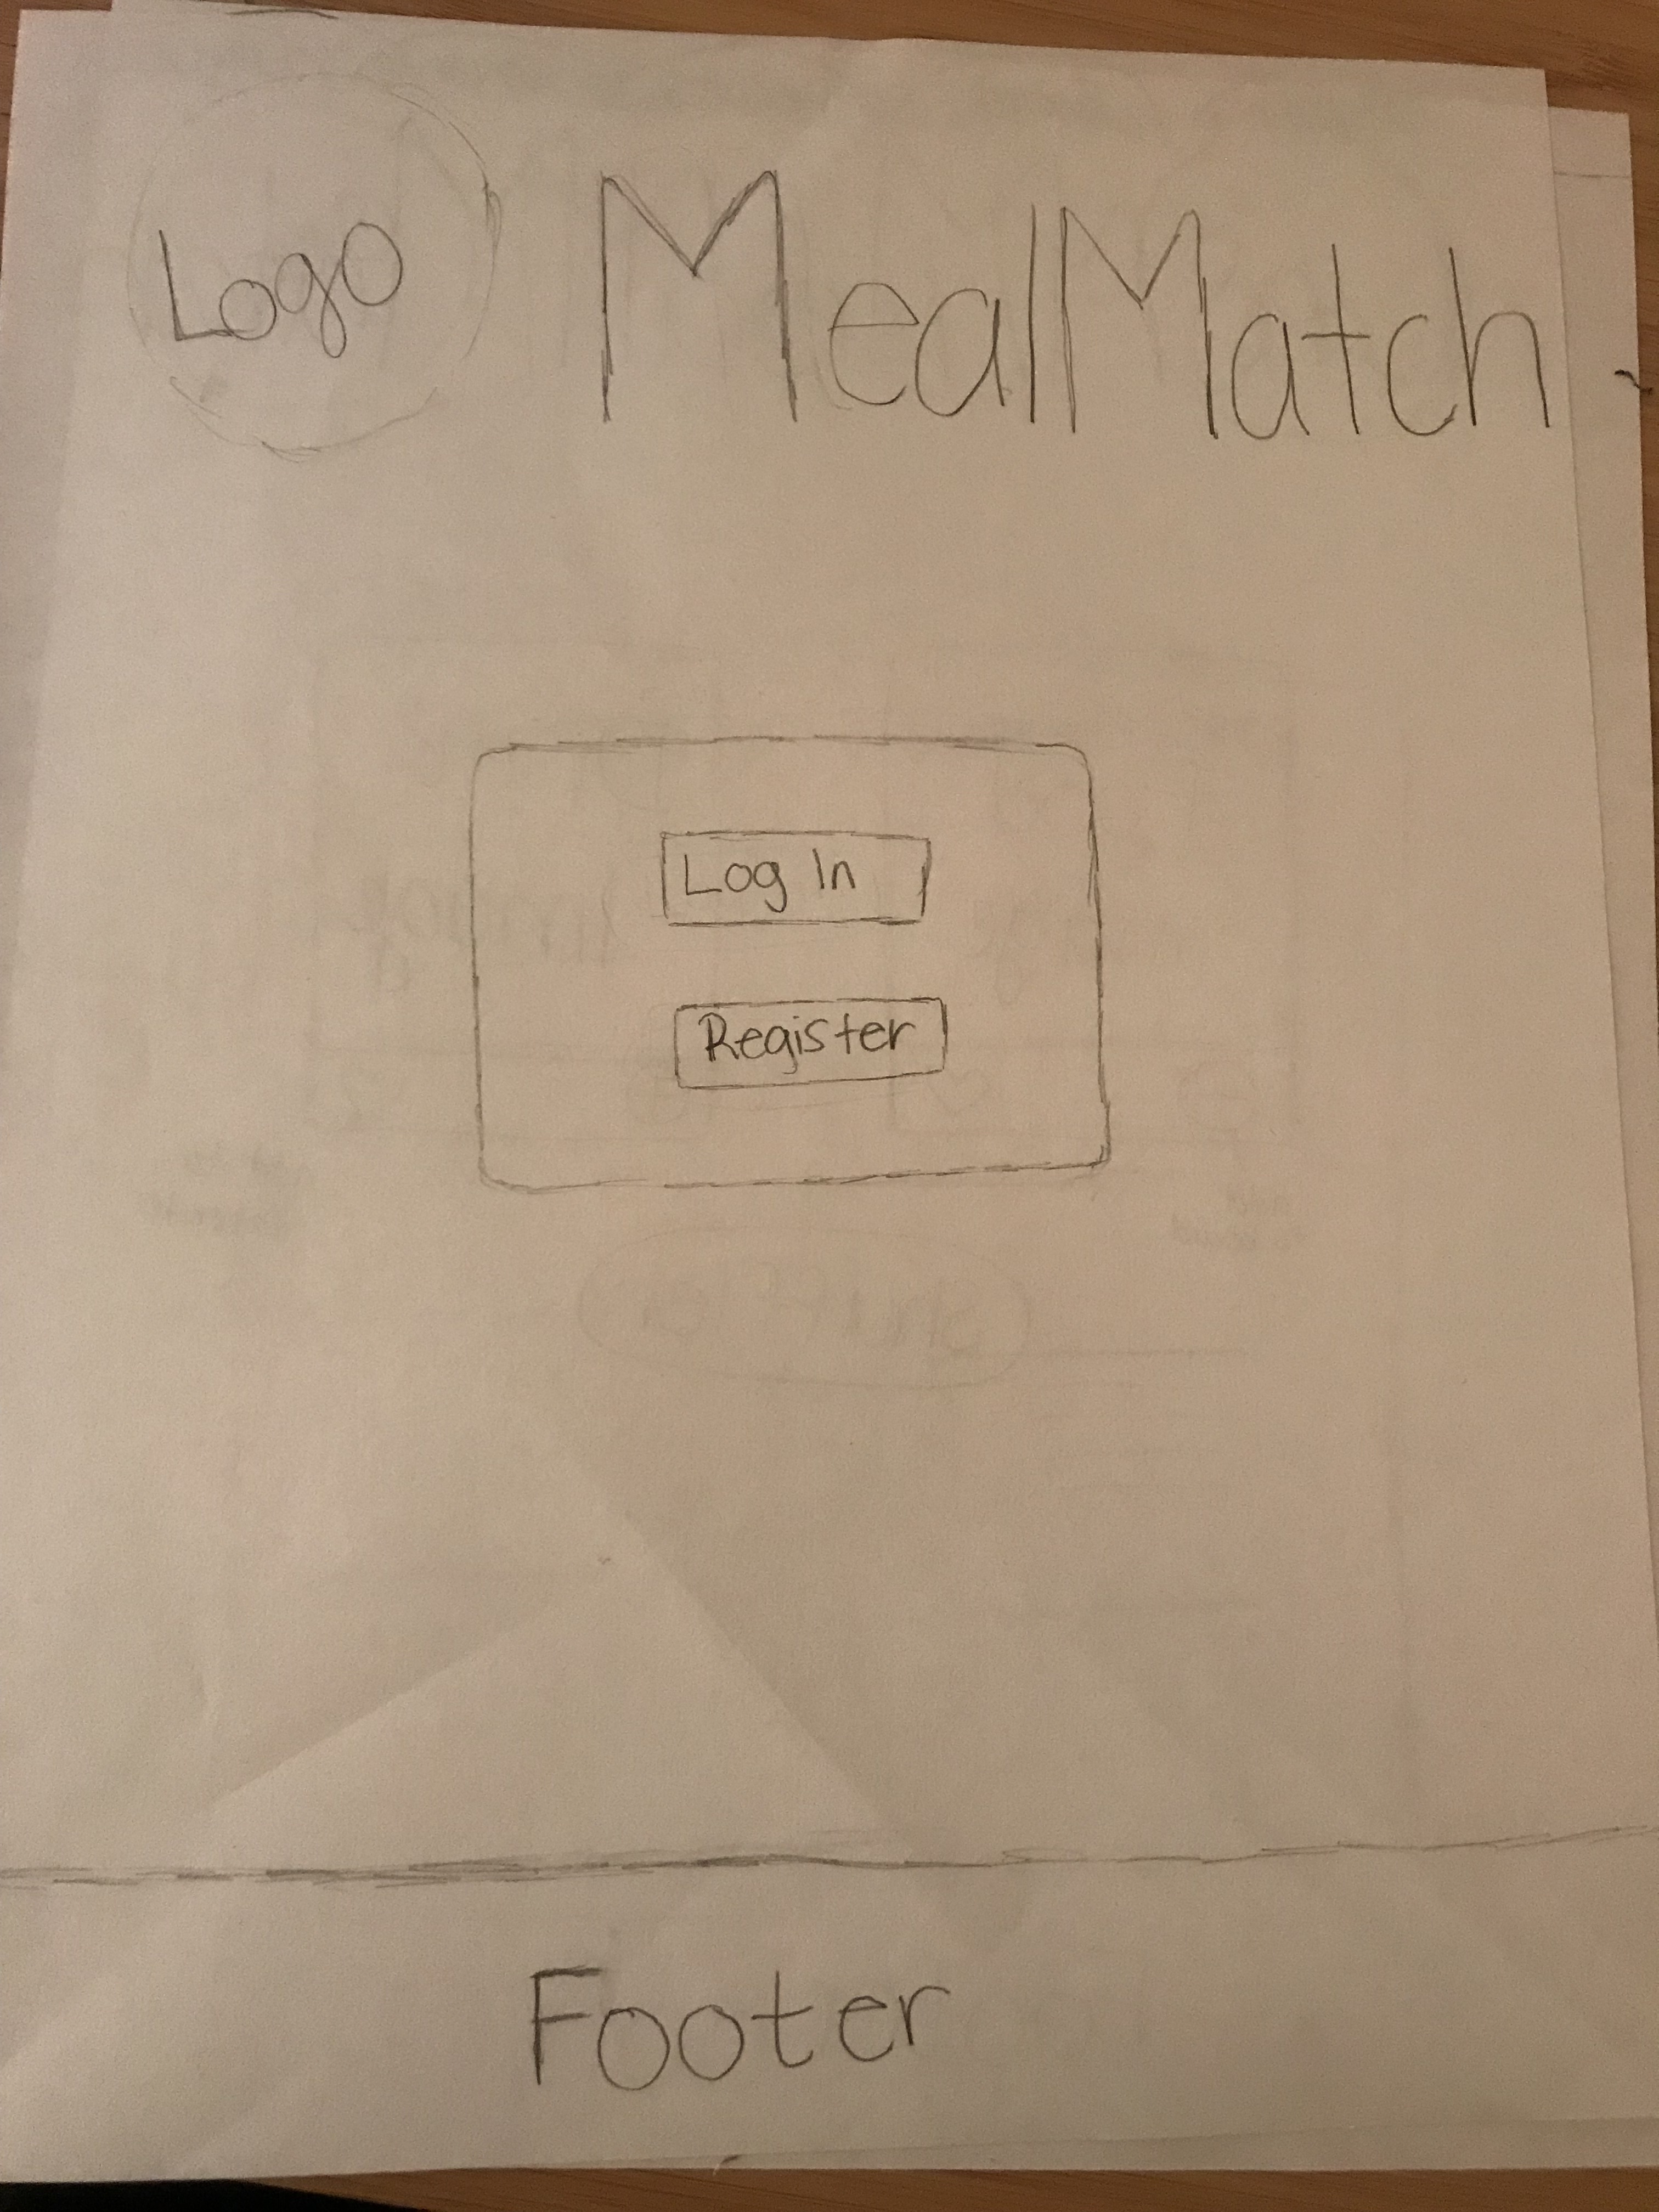 Logo
MealMatch
Log In
Register
Footer